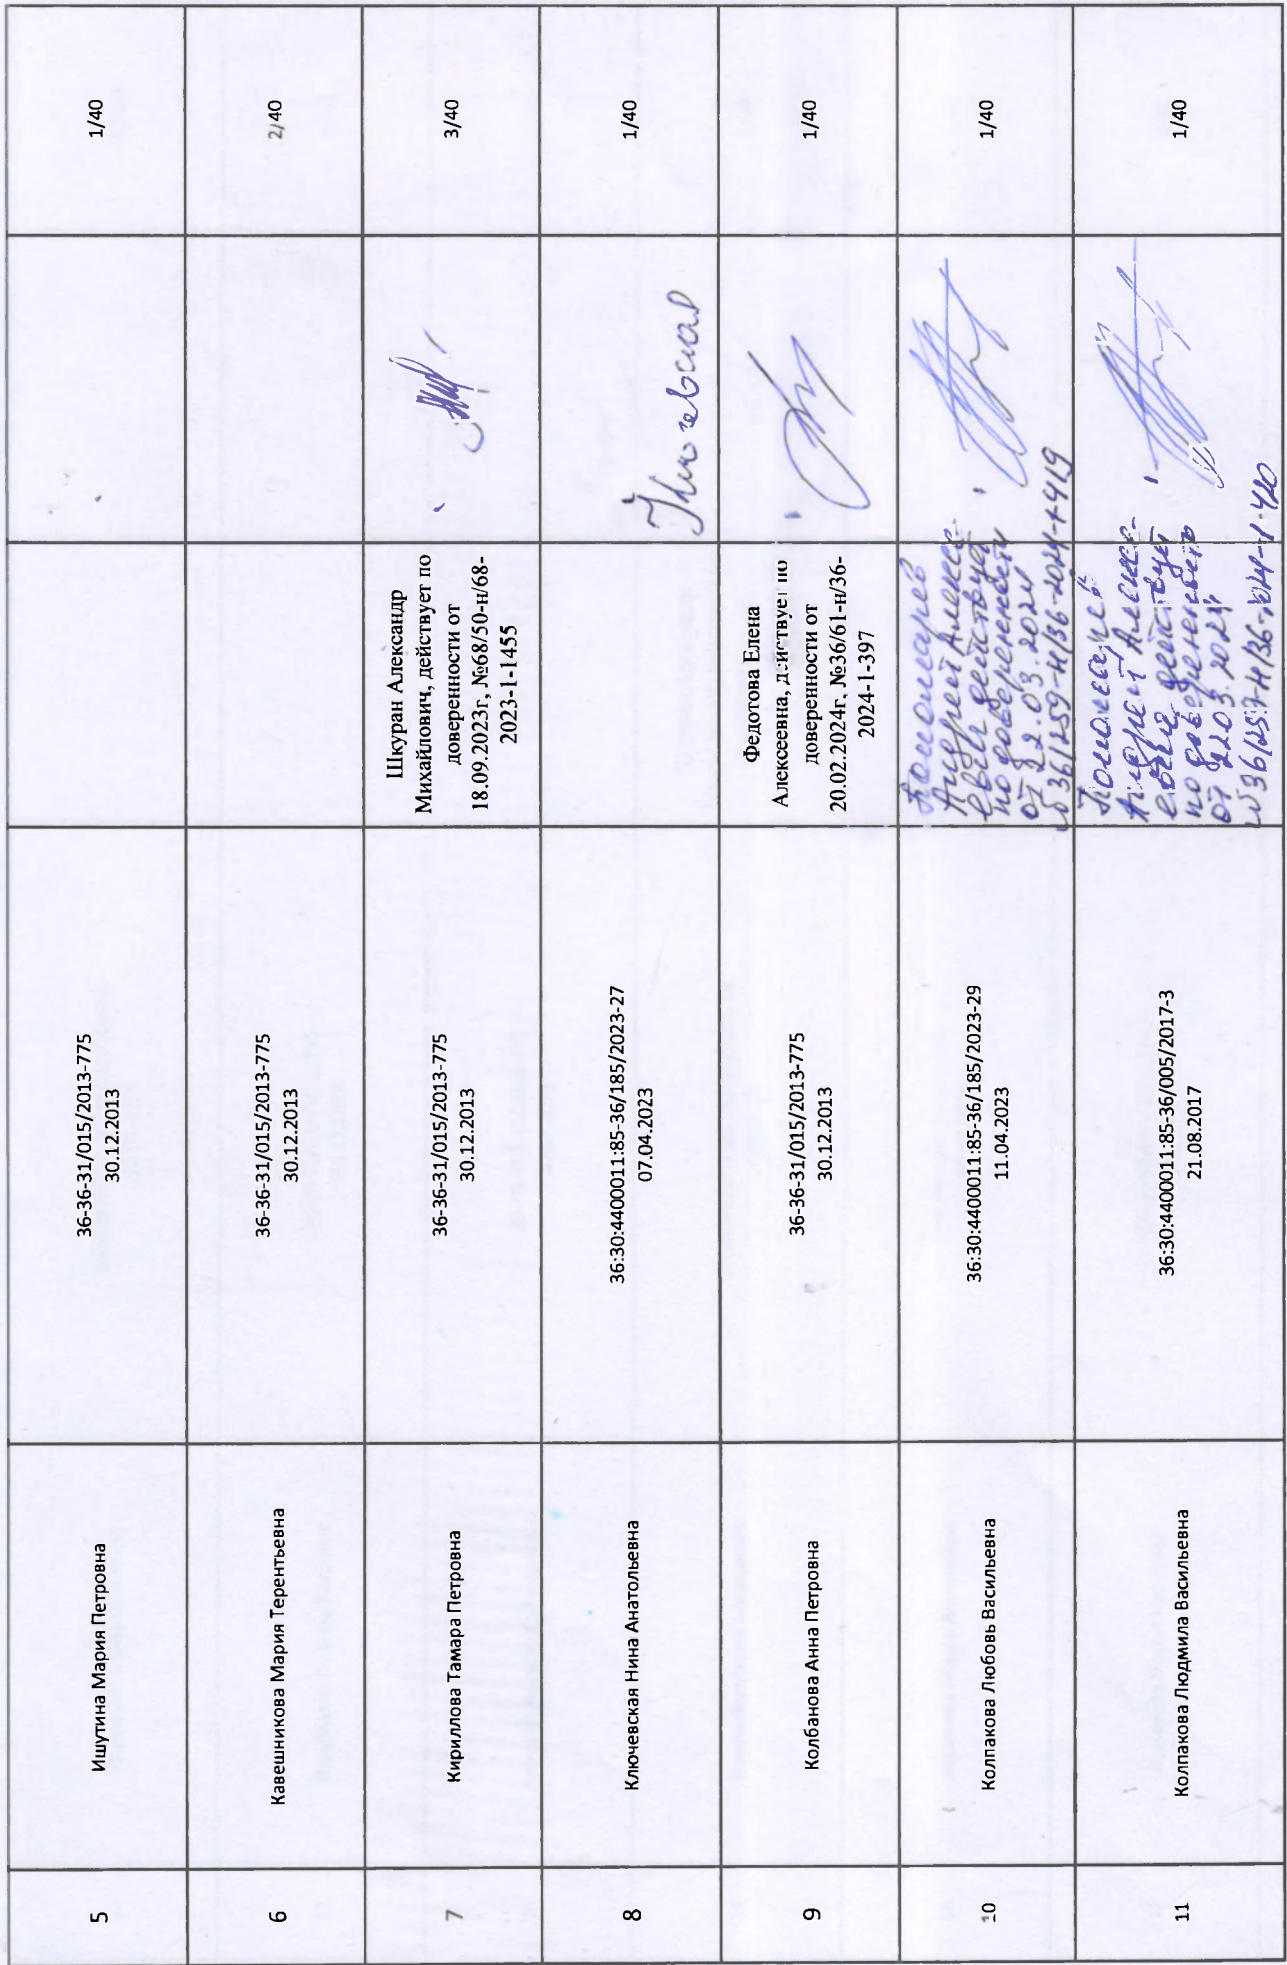 5
Ишутина Мария Петровна
36-36-31/015/2013-775
30.12.2013
1/40
6
Кавешникова Мария Терентьевна
36-36-31/015/2013-775
30.12.2013
2/40
7
Кириллова Тамара Петровна
36-36-31/015/2013-775
30.12.2013
Шкуран Александр
Михайлович, действует по
доверенности от
18.09.2023г, №68/50-н/68-
2023-1-1455
3/40
8
Ключевская Нина Анатольевна
36:30:4400011:85-36/185/2023-27
07.04.2023
Ключевская
1/40
9
Колбанова Анна Петровна
36-36-31/015/2013-775
30.12.2013
Федотова Елена
Алексеевна, действует по
доверенности от
20.02.2024г, №36/61-н/36-
2024-1-397
1/40
10
Колпакова Любовь Васильевна
36:30:4400011:85-36/185/2023-29
11.04.2023
Андрей Алексее-
вич действует
по доверенности
от 22.03.2024
№36/259-н/36-2024-1-419
1/40
11
Колпакова Людмила Васильевна
36:30:4400011:85-36/005/2017-3
21.08.2017
Андрей Алексее-
вич действует
по доверенности
от 22.03.2024
№36/257-н/36-2024-1-420
1/40